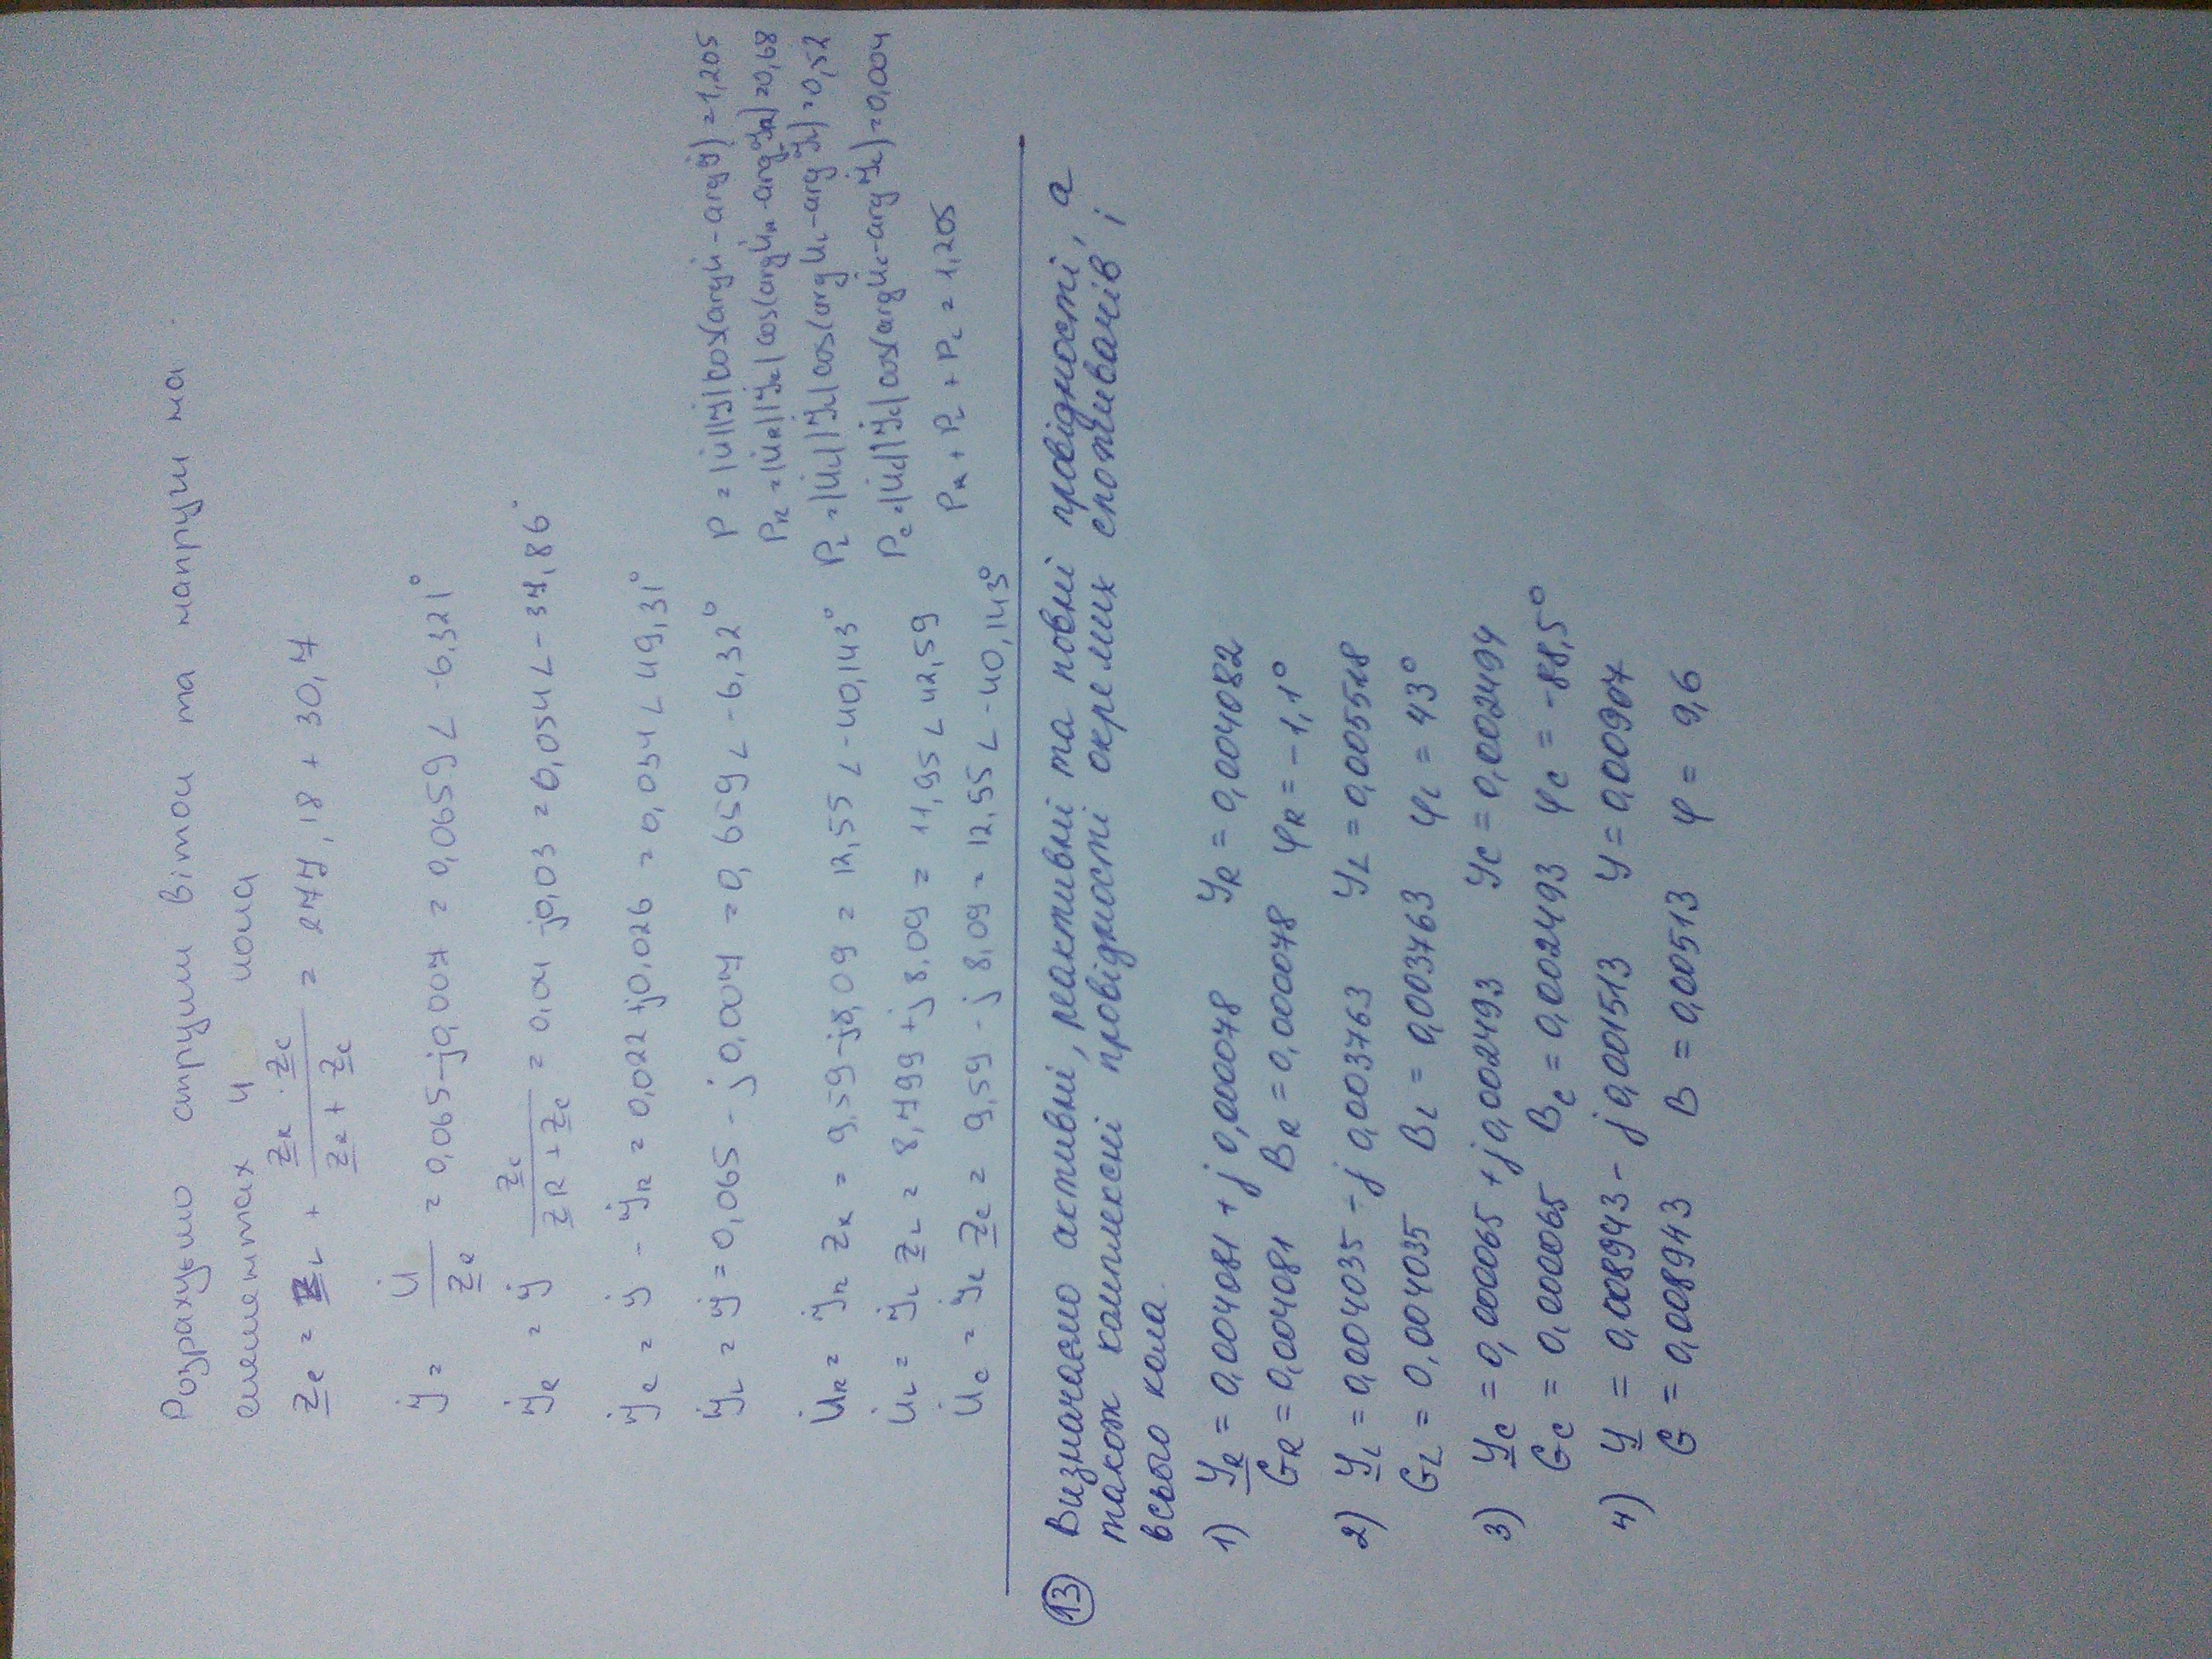 Розрахуємо струми віток та напруги на
елементах кола
Z̲е = Z̲L + Z̲R · Z̲C / Z̲R + Z̲C = 277,18 + 30,7
İ = U̇ / Z̲е = 0,065 - j0,007 = 0,0659 ∠ -6,321°
İR = İ Z̲C / Z̲R + Z̲C = 0,04 - j0,03 = 0,054 ∠ -37,86°
İC = İ - İR = 0,022 + j0,026 = 0,034 ∠ 49,31°
İL = İ = 0,065 - j0,007 = 0,659 ∠ -6,32°
U̇R = İR ZR = 9,59 - j8,09 = 12,55 ∠ -40,143°
U̇L = İL Z̲L = 8,799 + j8,09 = 11,95 ∠ 42,59
U̇C = İC Z̲C = 9,59 - j8,09 = 12,55 ∠ -40,143°
P = |U̇||İ|cos(argU̇ - argİ) = 1,205
PR = |U̇R||İR|cos(argU̇R - argİR) = 0,68
PL = |U̇L||İL|cos(argU̇L - argİL) = 0,52
PC = |U̇C||İC|cos(argU̇C - argİC) = 0,004
PR + PL + PC = 1,205
13 Визначаємо активні, реактивні та повні провідності, а
також комплексні провідності окремих споживачів і
всього кола.
1) Y̲R = 0,004081 + j0,000078 YR = 0,004082
GR = 0,004081 BR = 0,000078 φR = -1,1°
2) Y̲L = 0,004035 - j0,003763 YL = 0,005518
GL = 0,004035 BL = 0,003763 φL = 43°
3) Y̲C = 0,000065 + j0,002493 YC = 0,002494
GC = 0,000065 BC = 0,002493 φC = -88,5°
4) Y̲ = 0,008943 - j0,001513 Y = 0,00907
G = 0,008943 B = 0,00513 φ = 9,6